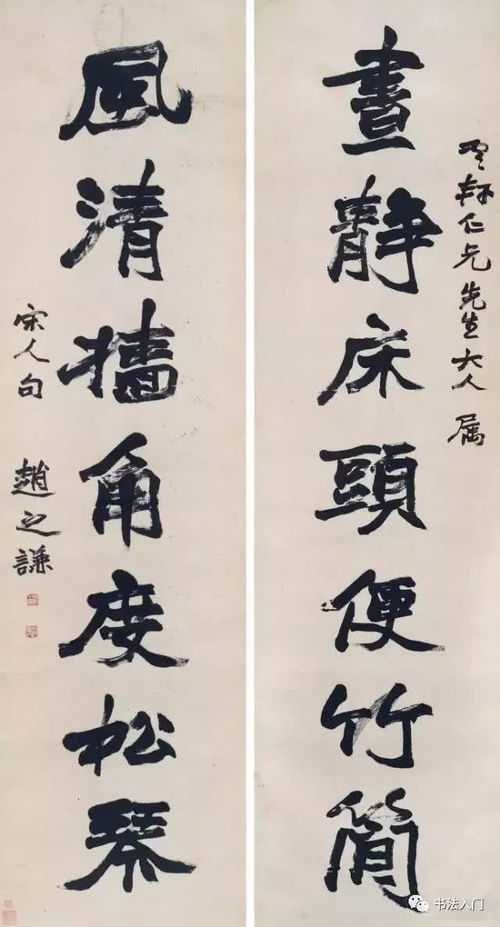 軒仁兄先生大人属
晝靜床頭便竹簡
風清牆角度松琴
宋人句 趙之謙
书法入门